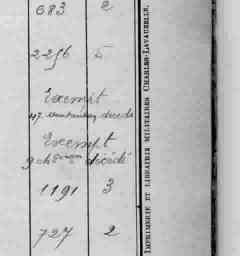 683 2
2256 5
Exempt
décédé
Exempt
décédé
1191 3
727 2
IMPRIMERIE ET LIBRAIRIE MILITAIRES CHARLES-LAVAUZELLE.